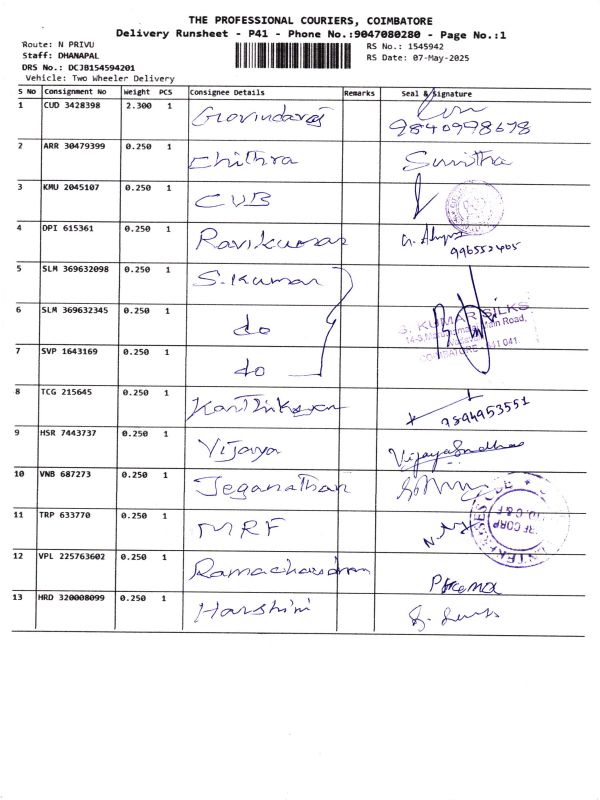 THE PROFESSIONAL COURIERS, COIMBATORE
Delivery Runsheet - P41 - Phone No.:9047080280 - Page No.:1
Route: N PRIVU
RS No.: 1545942
Staff: DHANAPAL
RS Date: 07-May-2025
DRS No.: DCJB1545942​01
Vehicle: Two Wheeler Delivery
S No Consignment No Weight PCS Consignee Details Remarks Seal & Signature
1 CUD 3428398 2.300 1 Govindaraj
9840998678
2 ARR 30479399 0.250 1 Chithra Sunitha
3 KMU 2045107 0.250 1 CUB
4 DPI 615361 0.250 1 Ravikumar
5 SLM 369632098 0.250 1 S.Kumar
6 SLM 369632345 0.250 1 do
S. KUMAR SILKS
Main Road,
7 SVP 1643169 0.250 1 do
COIMBATORE - 641 041.
8 TCG 215645 0.250 1 Karthikeyan
9894953551
9 HSR 7443737 0.250 1 Vijaya
10 VNB 687273 0.250 1 Jeganathan
11 TRP 633770 0.250 1 MRF
12 VPL 225763602 0.250 1 Ramachandran
Prema
13 HRD 320008099 0.250 1 Harshini